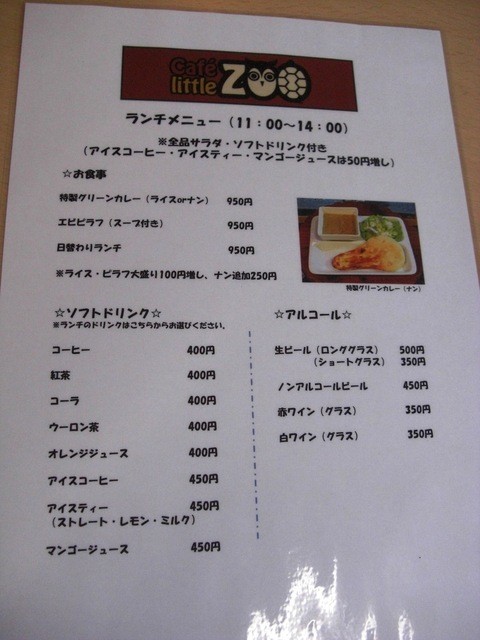 Café
little ZOO
ランチメニュー（11：00～14：00）
※全品サラダ・ソフトドリンク付き
（アイスコーヒー・アイスティー・マンゴージュースは50円増し）
☆お食事
特製グリーンカレー（ライスorナン） 950円
エビピラフ（スープ付き） 950円
日替わりランチ 950円
※ライス・ピラフ大盛り100円増し、ナン追加250円
特製グリーンカレー（ナン）
☆ソフトドリンク☆
※ランチのドリンクはこちらからお選びください。
コーヒー 400円
紅茶 400円
コーラ 400円
ウーロン茶 400円
オレンジジュース 400円
アイスコーヒー 450円
アイスティー 450円
（ストレート・レモン・ミルク）
マンゴージュース 450円
☆アルコール☆
生ビール（ロンググラス） 500円
（ショートグラス） 350円
ノンアルコールビール 450円
赤ワイン（グラス） 350円
白ワイン（グラス） 350円